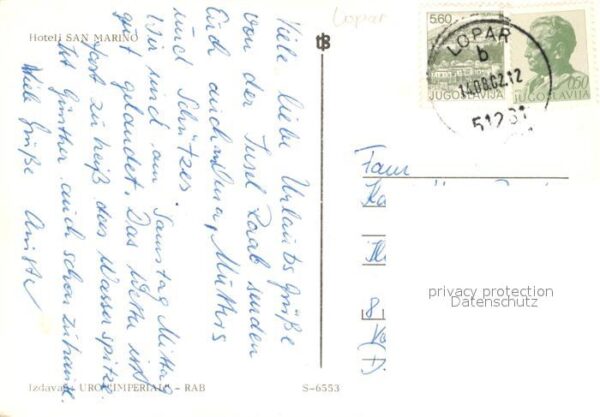 Lopar
Hoteli SAN MARINO
Viele liebe Urlaubsgrüße
von der Insel Raab senden
Euch auch Oma, Muttis
und Schützes.
Wir sind am Samstag Mittag
gut gelandet. Das Wetter ist
fast zu heiß das Wasser spitze.
Ist Günther auch schon zuhause.
Viele Grüße
Izdavač: UROŠ "IMPERIAL" - RAB
S-6553
5.60
JUGOSLAVIJA
0.50
JUGOSLAVIJA
LOPAR
b
14.08.82.12
51281
Fam
privacy protection
Datenschutz